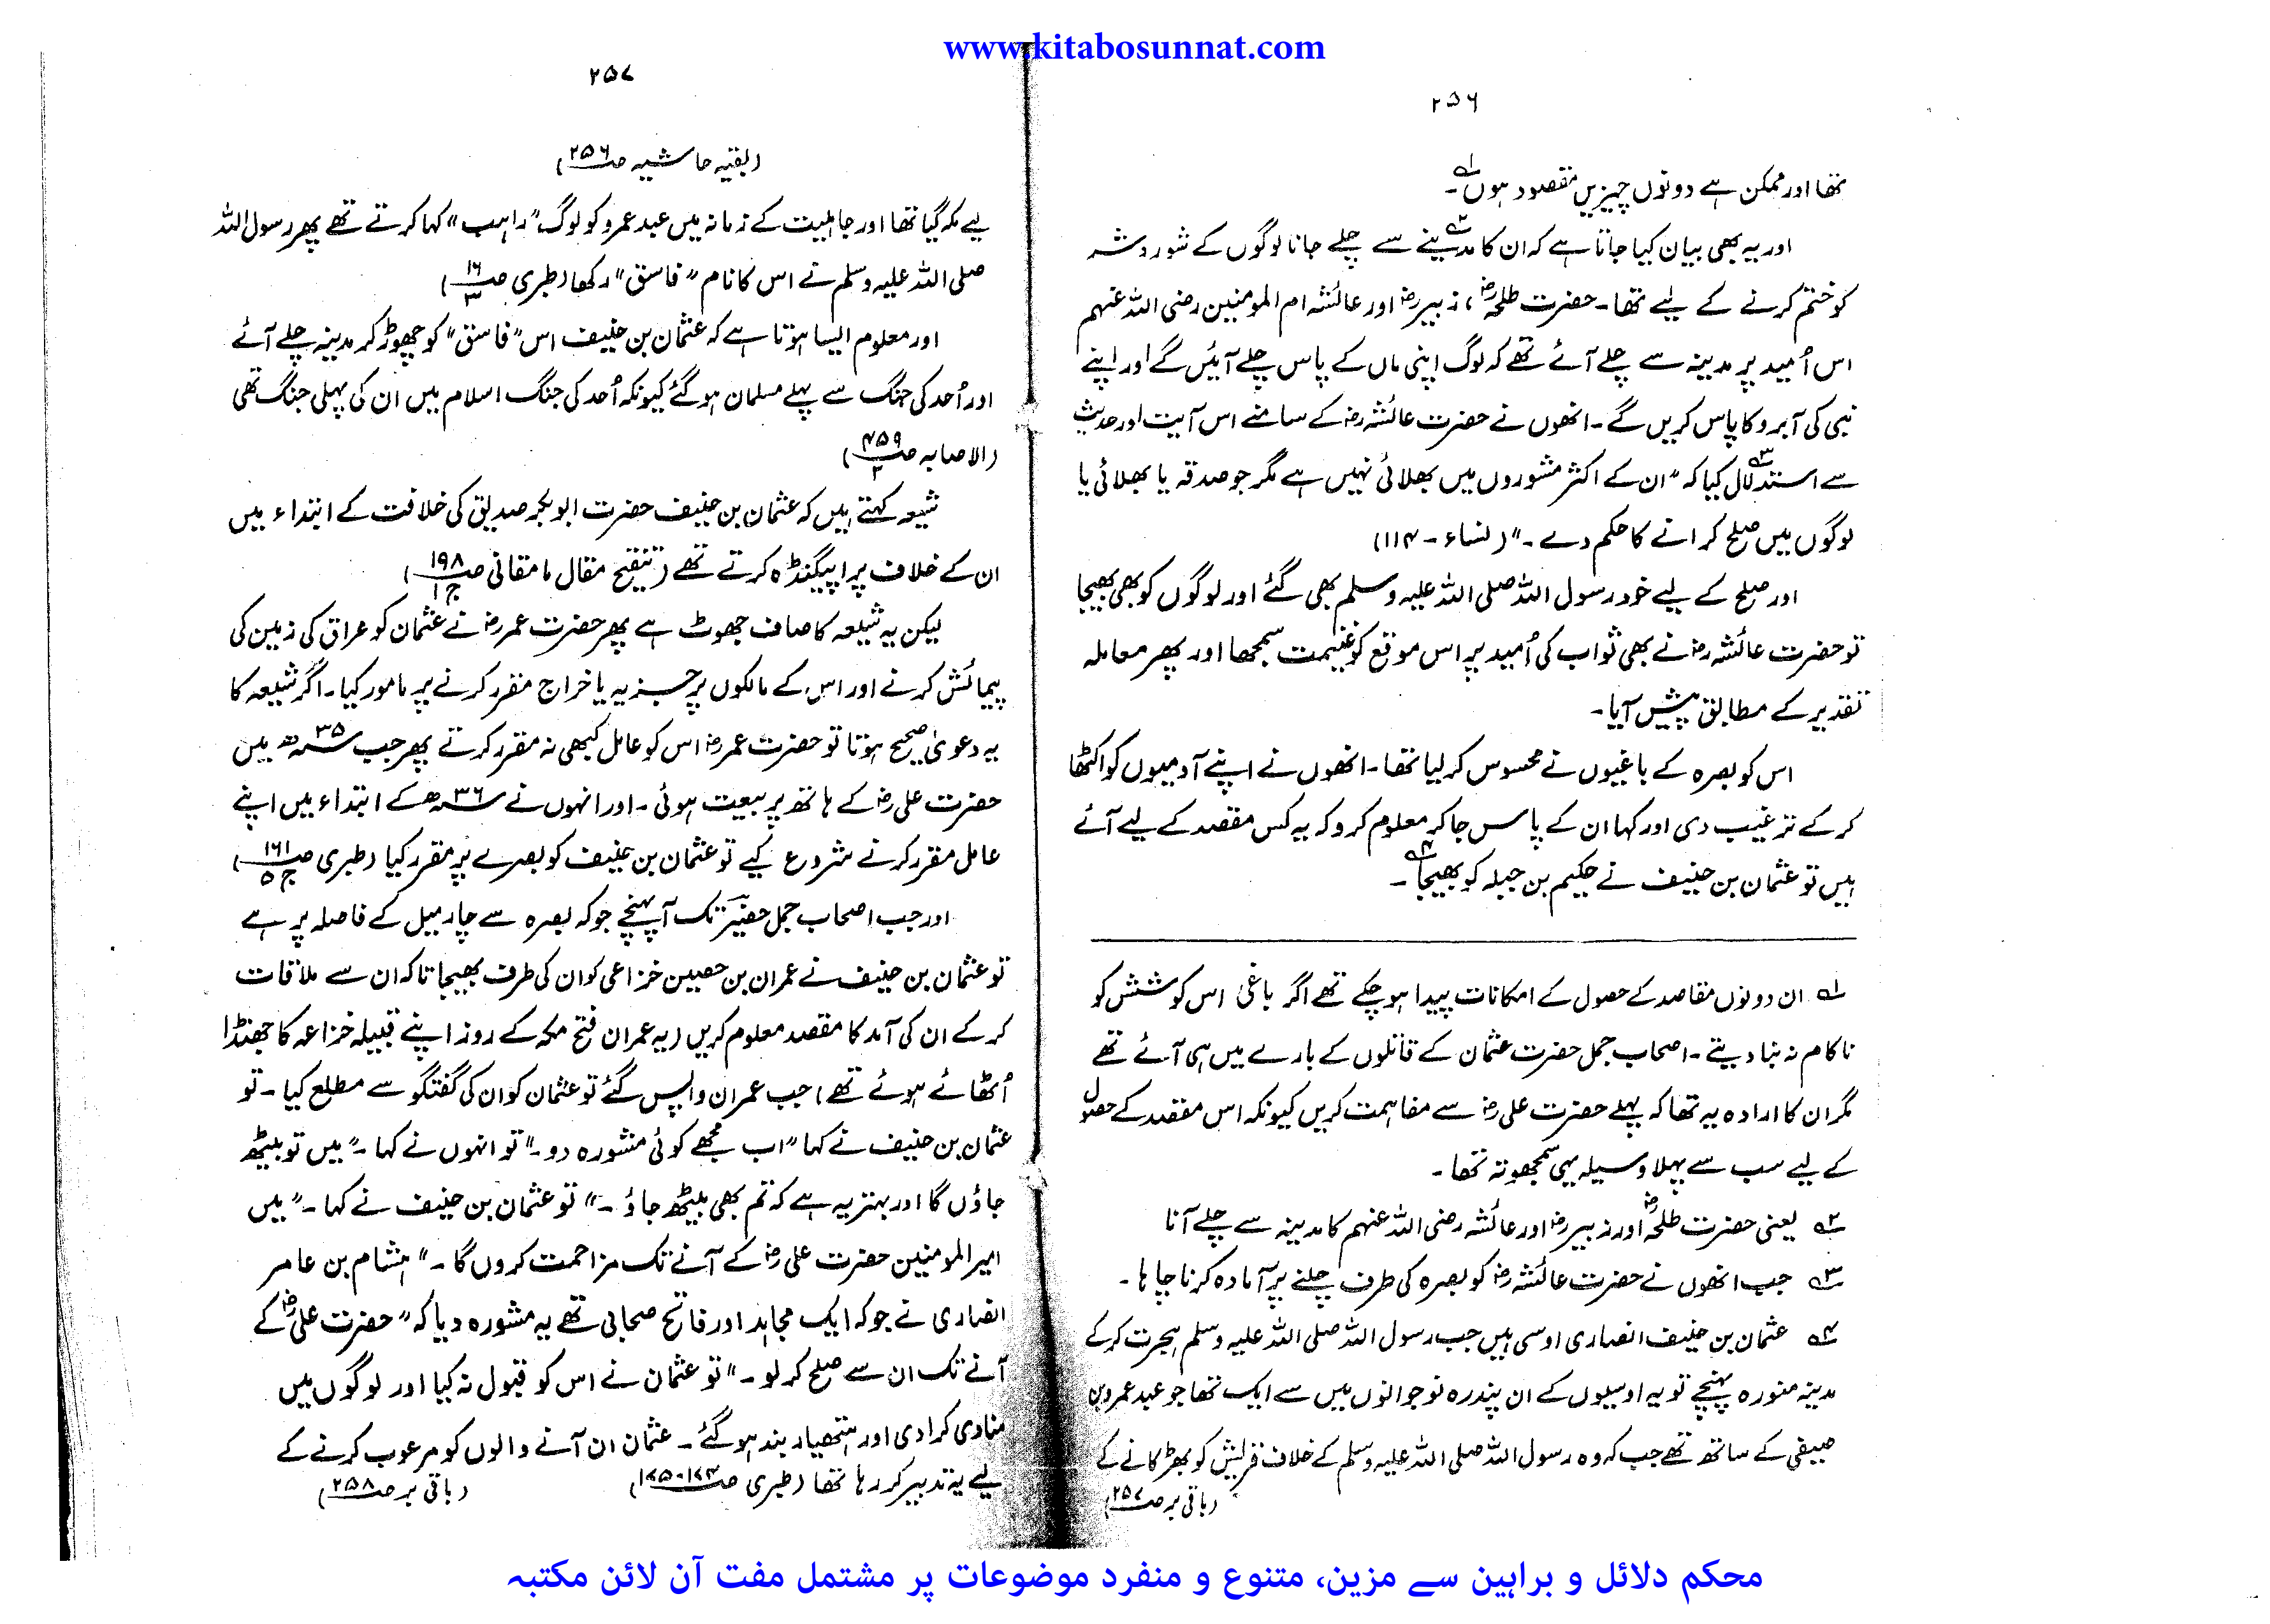 www.kitabosunnat.com
۲۵۶
تھا اور ممکن ہے دونوں چیزیں مقصود ہوں۱؎۔
اور یہ بھی بیان کیا جاتا ہے کہ ان کا مدینے۲؎ سے چلے جانا لوگوں کے شور و شر
کو ختم کرنے کے لیے تھا۔ حضرت طلحہؓ، زبیرؓ اور عائشہ ام المومنین رضی اللہ عنہم
اس اُمید پر مدینہ سے چلے آئے تھے کہ لوگ اپنی ماں کے پاس چلے آئیں گے اور اپنے
نبی کی آبرو کا پاس کریں گے۔ انھوں نے حضرت عائشہؓ کے سامنے اس آیت اور حدیث
سے استدلال۳؎ کیا کہ "ان کے اکثر مشوروں میں بھلائی نہیں ہے مگر جو صدقہ یا بھلائی یا
لوگوں میں صلح کرانے کا حکم دے۔" (نساء - ۱۱۴)
اور صلح کے لیے خود رسول اللہ صلی اللہ علیہ وسلم بھی گئے اور لوگوں کو بھی بھیجا
تو حضرت عائشہؓ نے بھی ثواب کی اُمید پر اس موقع کو غنیمت سمجھا اور پھر معاملہ
تقدیر کے مطابق پیش آیا۔
اس کو بصرہ کے باغیوں نے محسوس کر لیا تھا۔ انھوں نے اپنے آدمیوں کو اکٹھا
کر کے ترغیب دی اور کہا ان کے پاس جا کر معلوم کرو کہ یہ کس مقصد کے لیے آئے
ہیں تو عثمان بن حنیف نے حکیم بن جبلہ کو بھیجا۴؎۔
۱؎ ان دونوں مقاصد کے حصول کے امکانات پیدا ہو چکے تھے اگر باغی اس کوشش کو
ناکام نہ بنا دیتے۔ اصحاب جمل حضرت عثمان کے قاتلوں کے بارے میں ہی آئے تھے
مگر ان کا ارادہ یہ تھا کہ پہلے حضرت علیؓ سے مفاہمت کریں کیونکہ اس مقصد کے حصول
کے لیے سب سے پہلا وسیلہ یہی سمجھوتہ تھا۔
۲؎ یعنی حضرت طلحہؓ اور زبیرؓ اور عائشہ رضی اللہ عنہم کا مدینہ سے چلے آنا
۳؎ جب انھوں نے حضرت عائشہؓ کو بصرہ کی طرف چلنے پر آمادہ کرنا چاہا۔
۴؎ عثمان بن حنیف انصاری اوسی ہیں جب رسول اللہ صلی اللہ علیہ وسلم ہجرت کر کے
مدینہ منورہ پہنچے تو یہ اوسیوں کے ان پندرہ نوجوانوں میں سے ایک تھا جو عبد عمرو بن
صیفی کے ساتھ تھے جب کہ وہ رسول اللہ صلی اللہ علیہ وسلم کے خلاف قریش کو بھڑکانے کے
(باقی بر صـ۲۵۷)
۲۵۷
(بقیہ حاشیہ صـ۲۵۶)
لیے مکہ گیا تھا اور جاہلیت کے زمانہ میں عبد عمرو کو لوگ "راہب" کہا کرتے تھے پھر رسول اللہ
صلی اللہ علیہ وسلم نے اس کا نام "فاسق" رکھا (طبری صـ۱۶/۳)
اور معلوم ایسا ہوتا ہے کہ عثمان بن حنیف اس "فاسق" کو چھوڑ کر مدینہ چلے آئے
اور اُحد کی جنگ سے پہلے مسلمان ہو گئے کیونکہ اُحد کی جنگ اسلام میں ان کی پہلی جنگ تھی
(الاصابہ صـ۴۵۹/۲)
شیعہ کہتے ہیں کہ عثمان بن حنیف حضرت ابوبکر صدیق کی خلافت کے ابتداء میں
ان کے خلاف پراپیگنڈہ کرتے تھے (تنقیح مقال مامقانی صـ۱۹۸ ج۱)
لیکن یہ شیعہ کا صاف جھوٹ ہے پھر حضرت عمرؓ نے عثمان کو عراق کی زمین کی
پیمائش کرنے اور اس کے مالکوں پر جزیہ یا خراج مقرر کرنے پر مامور کیا۔ اگر شیعہ کا
یہ دعویٰ صحیح ہوتا تو حضرت عمرؓ اس کو عامل کبھی نہ مقرر کرتے پھر جب سنہ۳۵ھ میں
حضرت علیؓ کے ہاتھ پر بیعت ہوئی۔ اور انہوں نے سنہ۳۶ھ کے ابتداء میں اپنے
عامل مقرر کرنے شروع کیے تو عثمان بن حنیف کو بصرے پر مقرر کیا (طبری صـ۱۶۱ ج۵)
اور جب اصحاب جمل حفیر تک آ پہنچے جو کہ بصرہ سے چار میل کے فاصلہ پر ہے
تو عثمان بن حنیف نے عمران بن حصین خزاعی کو ان کی طرف بھیجا تاکہ ان سے ملاقات
کر کے ان کی آمد کا مقصد معلوم کریں (یہ عمران فتح مکہ کے روز اپنے قبیلہ خزاعہ کا جھنڈا
اُٹھائے ہوئے تھے) جب عمران واپس گئے تو عثمان کو ان کی گفتگو سے مطلع کیا۔ تو
عثمان بن حنیف نے کہا "اب مجھے کوئی مشورہ دو۔" تو انہوں نے کہا۔ "میں تو بیٹھ
جاؤں گا اور بہتر یہ ہے کہ تم بھی بیٹھ جاؤ۔" تو عثمان بن حنیف نے کہا۔ "میں
امیر المومنین حضرت علیؓ کے آنے تک مزاحمت کروں گا۔" ہشام بن عامر
انصاری نے جو کہ ایک مجاہد اور فاتح صحابی تھے یہ مشورہ دیا کہ "حضرت علیؓ کے
آنے تک ان سے صلح کر لو۔" تو عثمان نے اس کو قبول نہ کیا اور لوگوں میں
منادی کرا دی اور ہتھیار بند ہو گئے۔ عثمان ان آنے والوں کو مرعوب کرنے کے
لیے یہ تدبیر کر رہا تھا (طبری صـ۱۷۴-۱۷۵) (باقی بر صـ۲۵۸)
محکم دلائل و براہین سے مزین، متنوع و منفرد موضوعات پر مشتمل مفت آن لائن مکتبہ